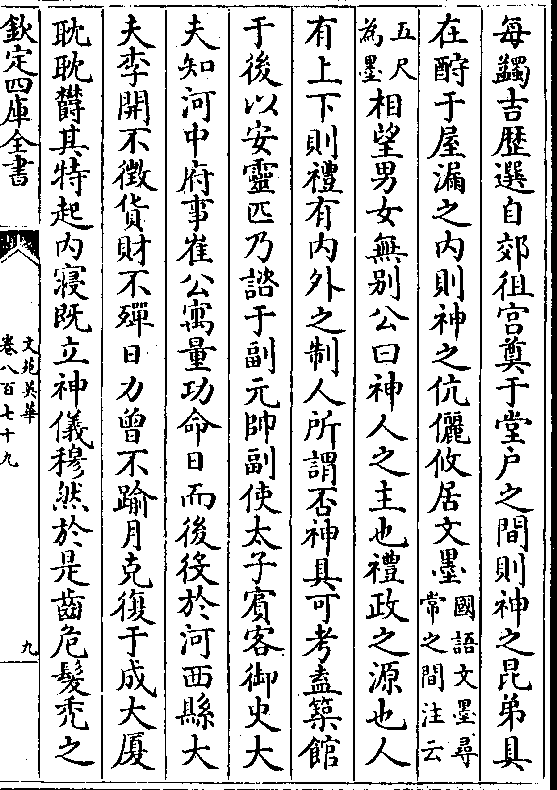 每蠲吉歴選自郊徂宫奠于堂户之間則神之昆弟具
在酹于屋漏之内則神之伉儷攸居文墨國語文墨尋常之間注云
五尺為墨相望男女無别公曰神人之主也禮政之源也人
有上下則禮有内外之制人所謂否神具可考盍築館
于後以安靈匹乃諮于副元帥副使太子賓客御史大
夫知河中府事崔公寓量功命日而後役於河西縣大
夫李開不徵貨財不殫日力曾不踰月克復于成大厦
耽耽欝其特起内寢既立神儀穆然於是齒危髮禿之
欽定四庫全書
文苑英華
卷八百七十九
九